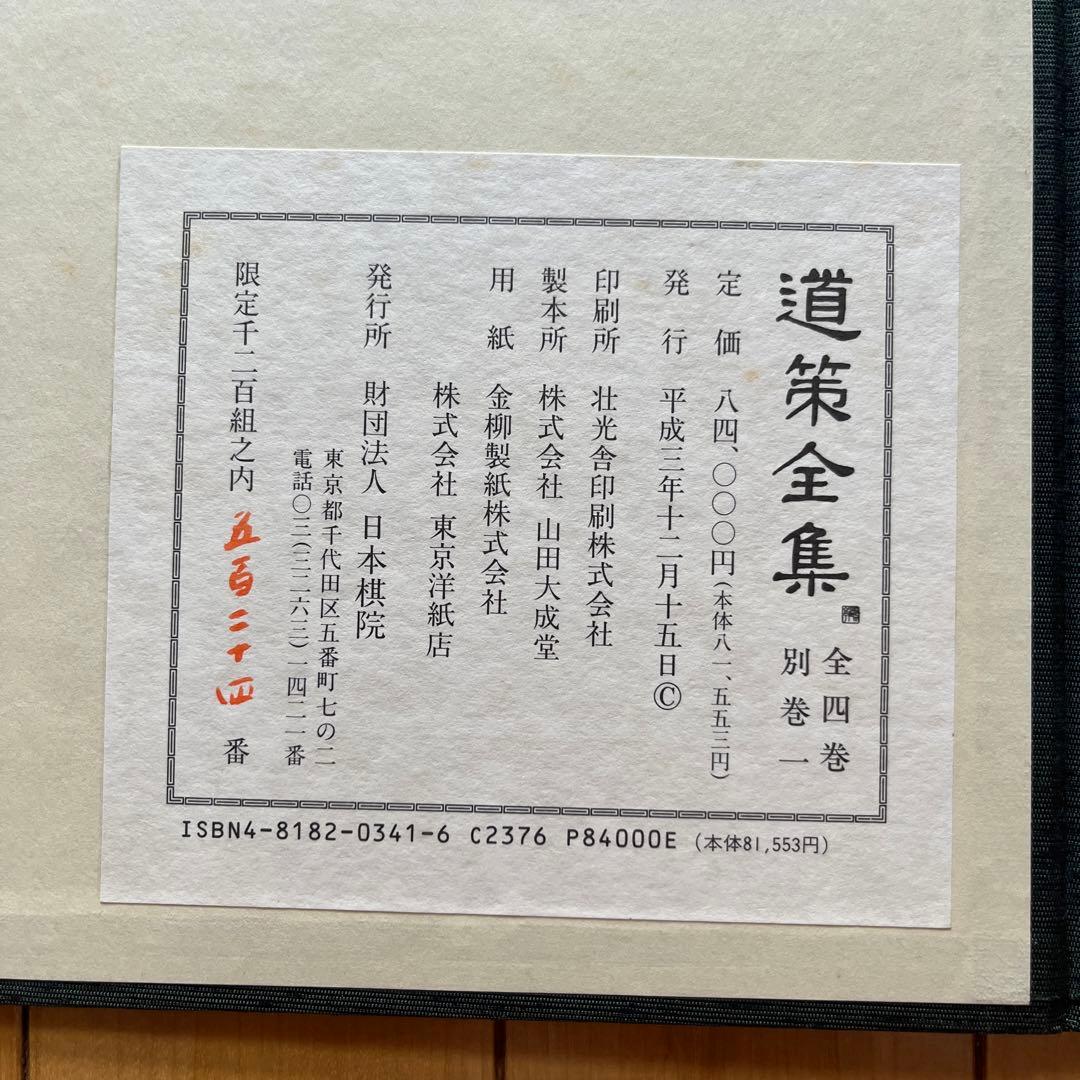 道策全集
全四巻
別巻一
定価 八四、〇〇〇円(本体八一、五五三円)
発行 平成三年十二月十五日©
印刷所 壮光舎印刷株式会社
製本所 株式会社 山田大成堂
用紙 金柳製紙株式会社
株式会社 東京洋紙店
発行所 財団法人 日本棋院
東京都千代田区五番町七の二
電話〇三(三二六三)一四二一番
限定千二百組之内 五百二十四 番
ISBN4-8182-0341-6 C2376 P84000E (本体81,553円)